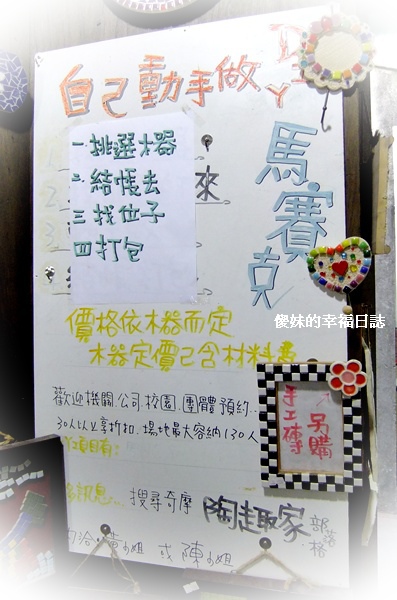 自己動手做 DIY
馬賽克
一挑選木器
二結帳去
三找位子
四打包
來
價格依木器而定
木器定價已含材料費
歡迎機關.公司.校園.團體預約..
30人以上享折扣.場地最大容納130人
另購
手工磚
訊息... 搜尋奇摩 陶趣家 部落格
洽黃小姐 或 陳小姐
傻妹的幸福日誌